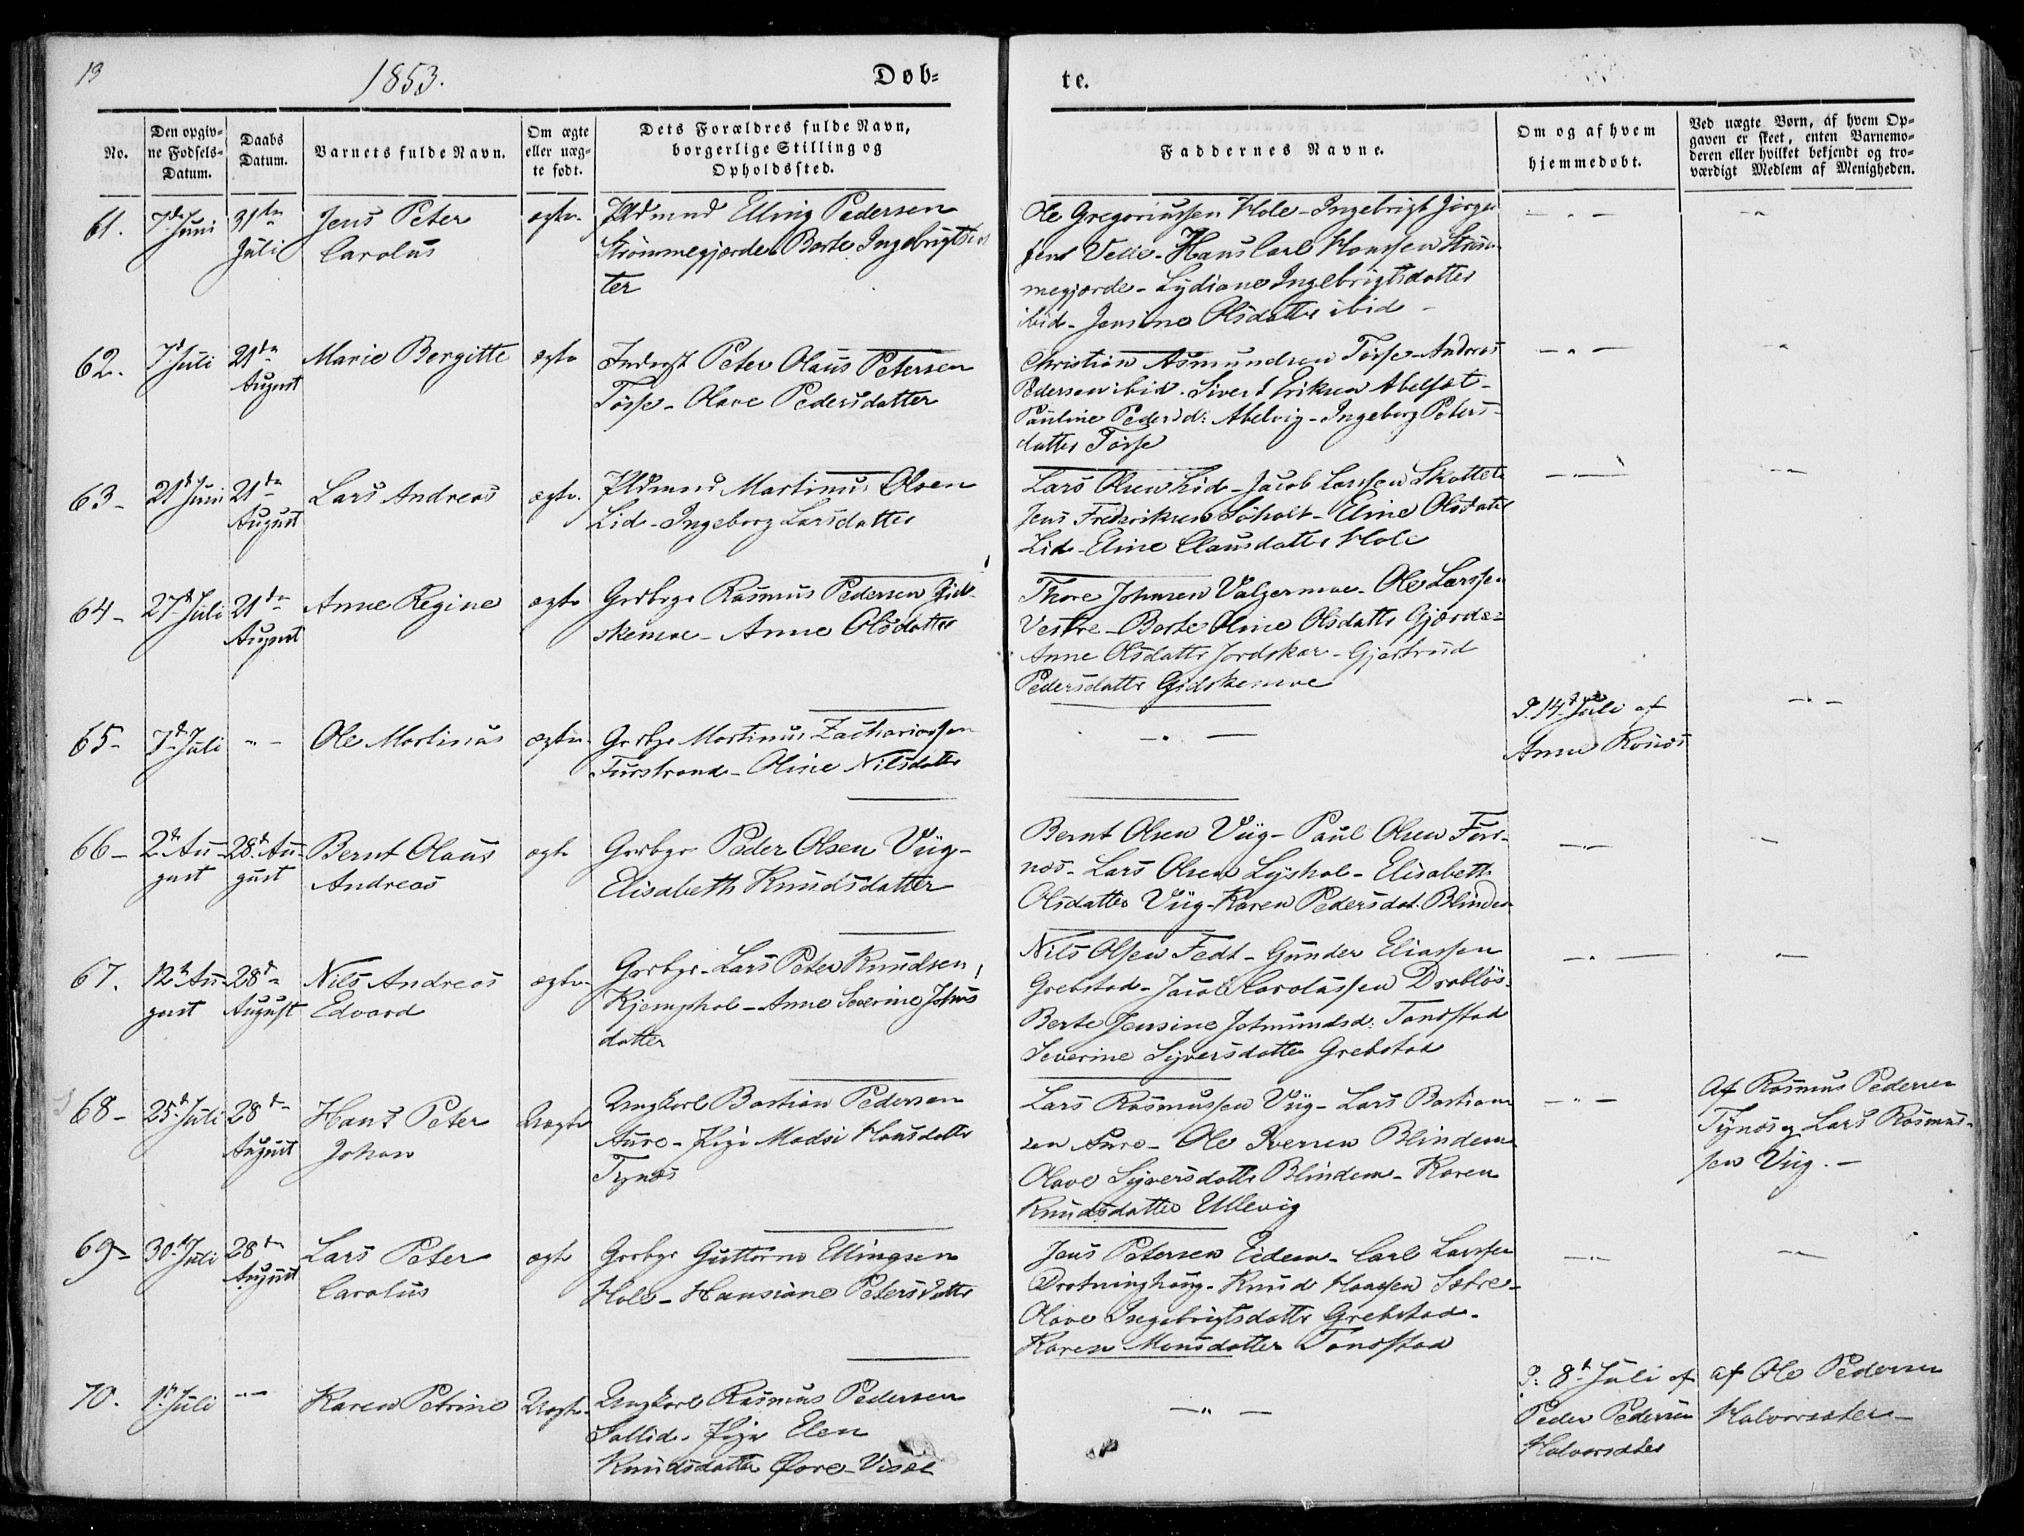 13
1853.
Døb-
te.
No.
Den opgiv-
ne Fødsels-
Datum.
Daabs
Datum.
Barnets fulde Navn.
Om ægte
eller uæg-
te født.
Dets Forældres fulde Navn,
borgerlige Stilling og
Opholdssted.
Faddernes Navne.
Om og af hvem
hjemmedøbt.
Ved uægte Børn, af hvem Op-
gaven er skeet, enten Barnemo-
deren eller hvilket bekjendt og tro-
værdigt Medlem af Menigheden.
61.
7d Juni
31te
Juli
Jens Peter
Carolus
ægte
Pldmand Elling Pedersen
Strømmegjerde Berte Ingebrigtsdat
ter
Ole Gregoriussen Hole - Ingebrigt Jørgen
sen Velle - Hans Carl Hanssen Strøm
megjerde - Lydiane Ingebrigtsdatter
ibid - Jensine Olsdatter ibid -
62.
7d Juli
21de
August
Marie Bergitte
ægte
Inderst Peter Olaus Petersen
Tøsse - Olave Pedersdatter
Christian Asmundsen Tøsse - Andreas
Pedersen ibid - Sivert Eriksen Abelset -
Pauline Pedersd: Abelvig - Ingeborg Peters-
datter Tøsse
63 -
21d Juni
21de
August
Lars Andreas
ægte.
Pldmand Martinus Olsen
Lid - Ingeborg Larsdatter
Lars Olsen Lid - Jacob Larssen Skotte
Jens Frederiksen Søholt - Eline Olsdatter
Lid - Eline Clausdatter Hole
64 -
27d Juli
21de
August
Anne Regine
ægte
Grdbgr Rasmus Pedersen Gid-
skemoe - Anne Olsdatter
Thore Johnsen Valgermoe - Ole Larssen
Vestre - Berte Oline Olsdatter Gjærde -
Anne Olsdatter Jordskar - Gjertrud
Pedersdatter Gidskemoe
65 -
7d Juli
" -
Ole Martinus
ægte
Grdbgr Martinus Zachariassen
Furstrand - Oline Nilsdatter
- " -
D. 14d Juli af
Anne
66 -
2d Au-
gust
28d Au-
gust
Bernt Olaus
Andreas
ægte
Grdbgr Peder Olsen Viig -
Elisabeth Knudsdatter
Bernt Olsen Viig - Paul OlsenFørs-
næs - Lars Olsen Lyshol - Elisabeth
Olsdatter Viig - Karen Pedersdat. Blindem
67.
12te Au-
gust
28de
August
Nils Andreas
Edvard
ægte
Grdbgr - Lars Peter Knudsen
Kjemphol - Anne Severine Johns
datter
Nils Olsen Fedt - Gunder Eliassen
Grebstad - Jacob Carolussen Drabløs
Berte Jensine Johnundsd: Tandstad
Severine Syversdatter Grebstad
68 -
25d Juli
28de
August
Hans Peter
Johan
Uægte
Ungkarl Bastian Pedersen
Aure - Pige Madsi Hansdatter
Tynæs
Lars Rasmussen Viig - Lars Bastian
sen Aure - Ole Iversen Blindem
Olave Syversdatter Blindem - Karen
Knudsdatter Ullevig
Af Rasmus Pedersen
Tynæs og Lars Rasmus-
sen Viig. -
69 -
30d Juli
28de
August
Lars Peter
Carolus
ægte
Grdbgr Guttorm Ellingsen
Hole - Hansiane Petersdatter
Jens Petersen Eidem - Carl Larssen
Drotninghaug - Knud Hanssen Sætre -
Olave Ingebrigtsdatter Grebstad -
Karen Monsdatter Tandstad
70.
1ste Juli
" -
Karen Petrine
Uægte
Ungkarl Rasmus Pedersen
Sollid. Pige Elen
Knudsdatter Øvre - Visæt
- " -
D: 8de Juli af
Peder Pedersen
Halvorsæter
af Ole Pedersen
Halvorsæter -